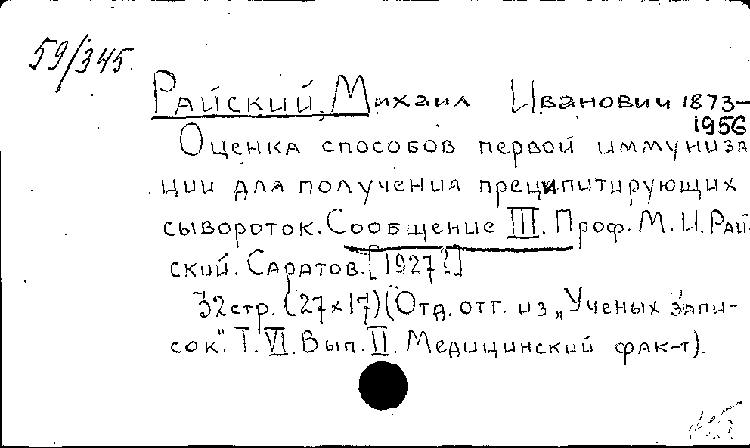 59/345.
Райский, Михаил Иванович 1873–
1956
Оценка способов первой иммуниза
ции для получения преципитирующих
сывороток. Сообщение III. Проф. М. И. Рай
ский. Саратов. [1927?]
32 стр. (27×17) (Отд. отт. из „Ученых запи-
сок". Т. VI. Вып. II. Медицинский фак-т).